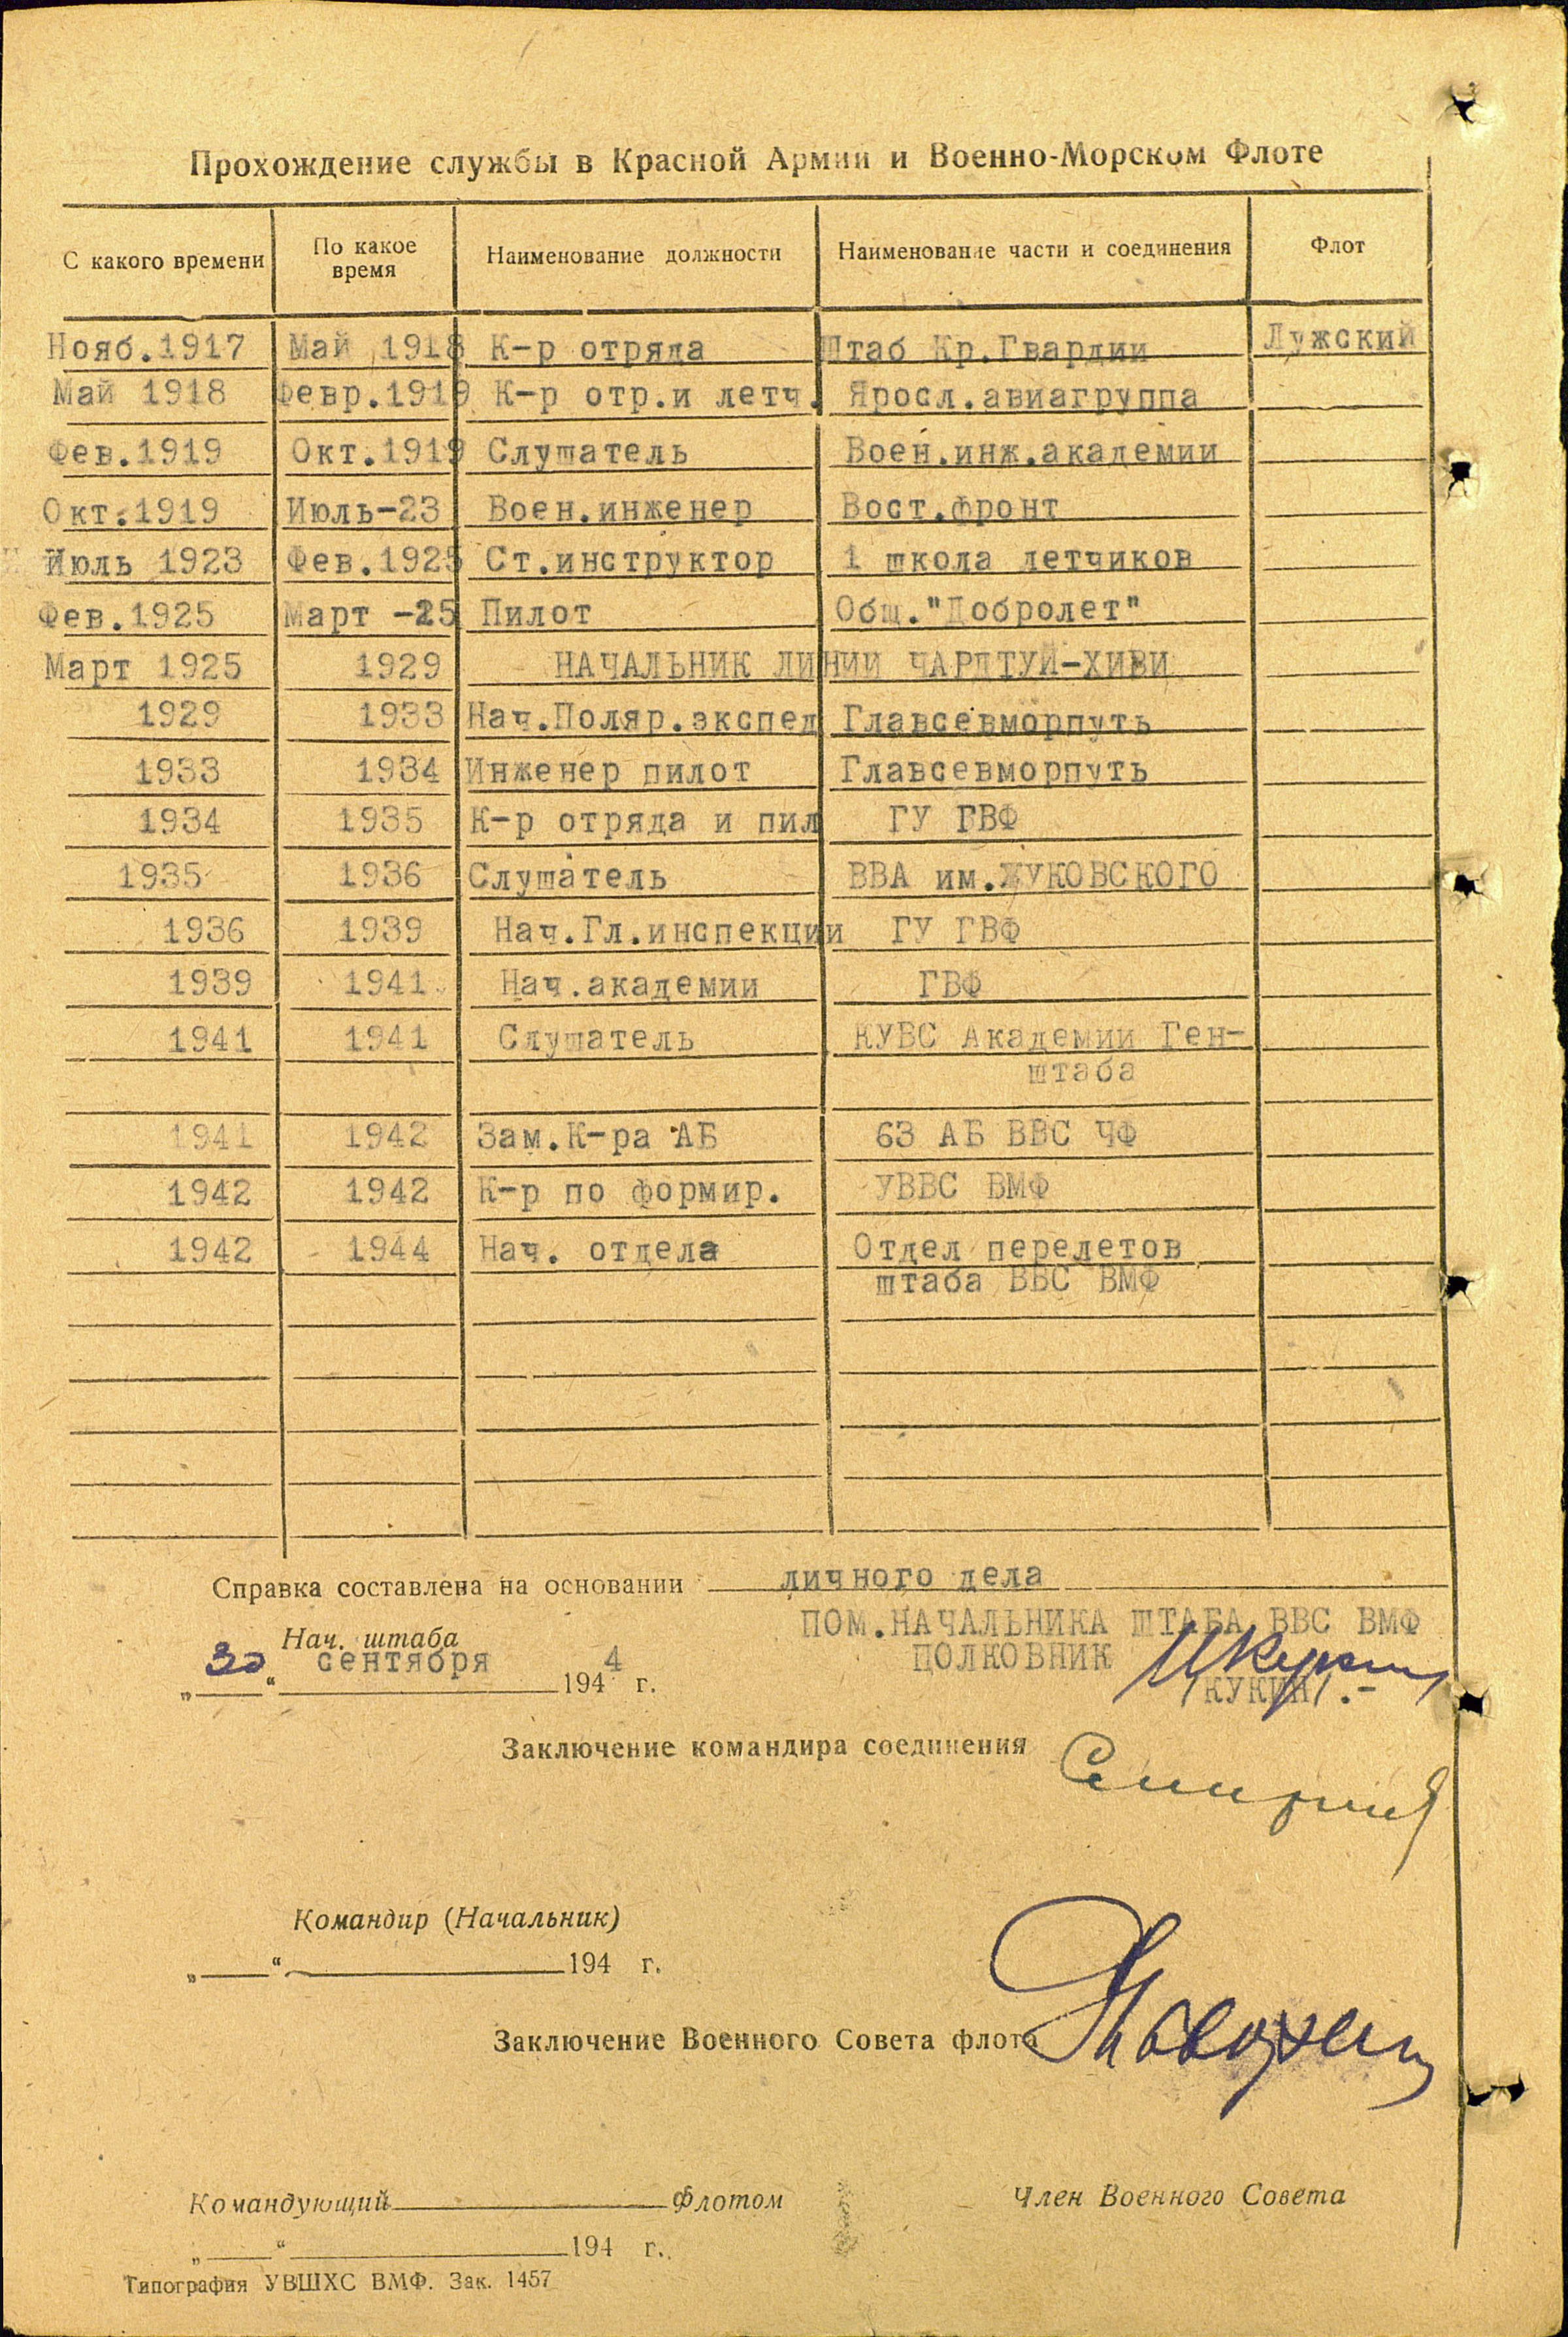 Прохождение службы в Красной Армии и Военно-Морском Флоте
С какого времени По какое время Наименование должности Наименование части и соединения Флот
Нояб.1917 Май 1918 К-р отряда Штаб Кр.Гвардии Лужский
Май 1918 Февр.1919 К-р отр.и летч. Яросл.авиагруппа
Фев.1919 Окт.1919 Слушатель Воен.инж.академии
Окт.1919 Июль-23 Воен.инженер Вост.фронт
Июль 1923 Фев.1925 Ст.инструктор 1 школа летчиков
Фев.1925 Март -25 Пилот Общ."Добролет"
Март 1925 1929 НАЧАЛЬНИК ЛИНИИ ЧАРДТУЙ-ХИВИ
1929 1933 Нач.Поляр.экспед Главсевморпуть
1933 1934 Инженер пилот Главсевморпуть
1934 1935 К-р отряда и пил ГУ ГВФ
1935 1936 Слушатель ВВА им.ЖУКОВСКОГО
1936 1939 Нач.Гл.инспекции ГУ ГВФ
1939 1941 Нач.академии ГВФ
1941 1941 Слушатель КУВС Академии Ген-
штаба
1941 1942 Зам.К-ра АБ 63 АБ ВВС ЧФ
1942 1942 К-р по формир. УВВС ВМФ
1942 1944 Нач. отдела Отдел перелетов
штаба ВВС ВМФ
Справка составлена на основании личного дела
ПОМ.НАЧАЛЬНИКА ШТАБА ВВС ВМФ
Нач. штаба
ПОЛКОВНИК
„30“ сентября 1944 г.
/КУКИН/.-
Заключение командира соединения
Командир (Начальник)
„ “ 194 г.
Заключение Военного Совета флота
Командующий Флотом Член Военного Совета
„ “ 194 г.
Типография УВШХС ВМФ. Зак. 1457